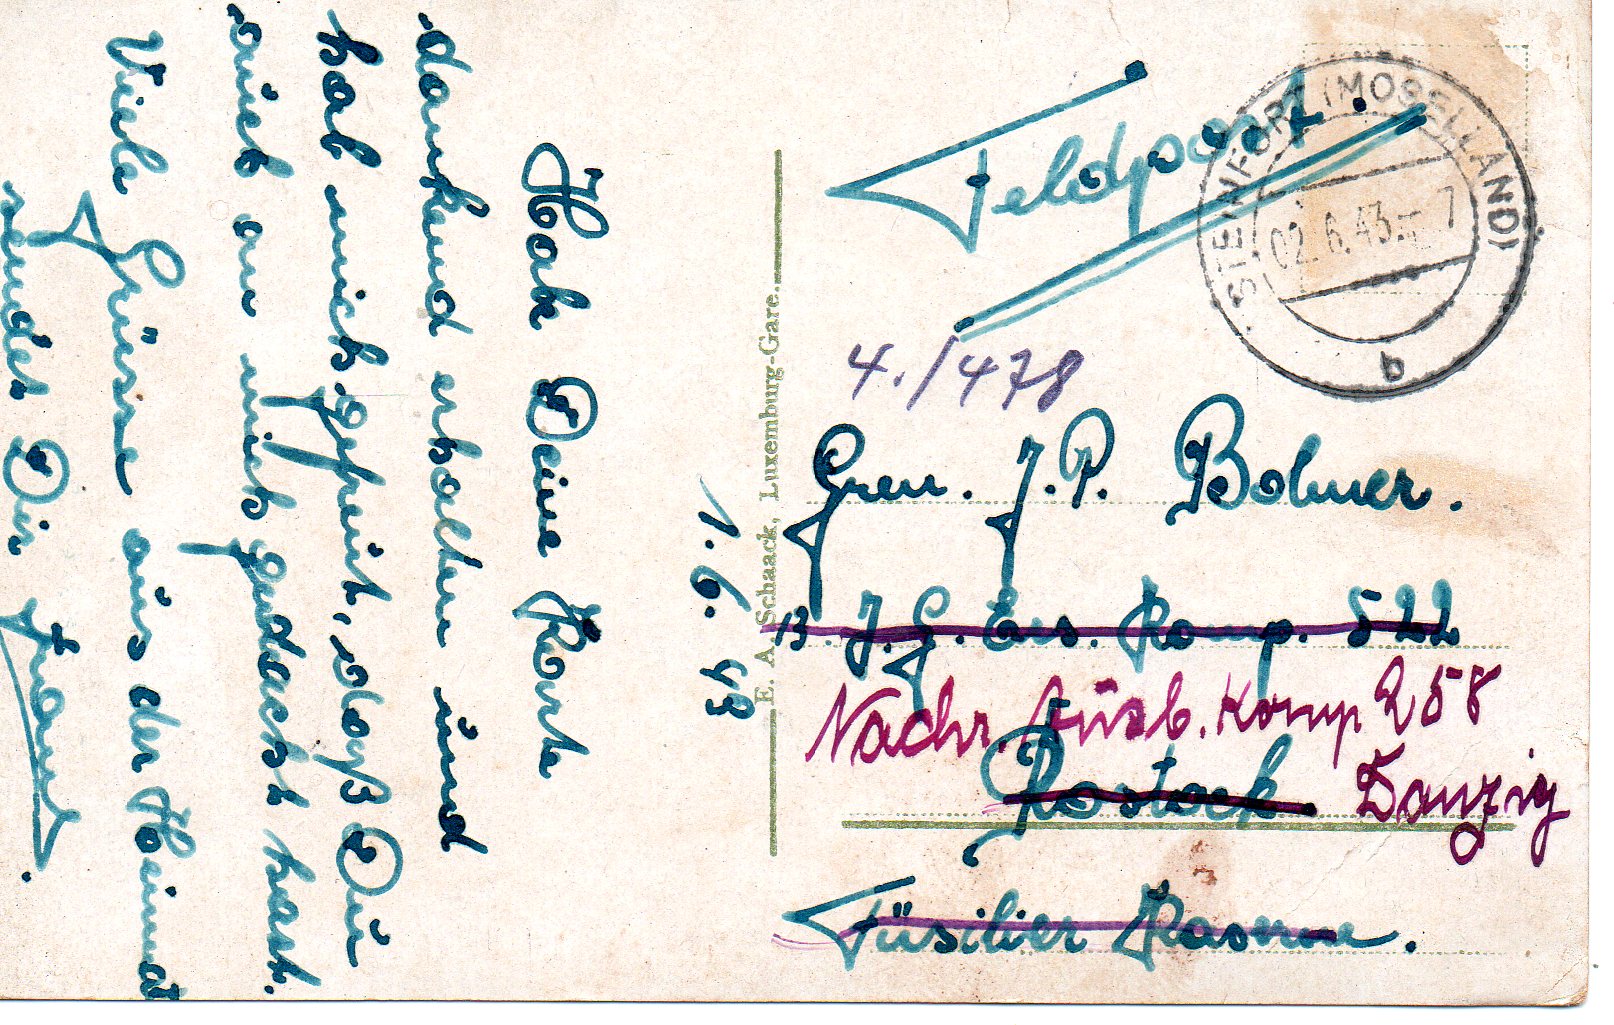 1. 6. 43
Hab Deine Karte
dankend erhalten und
hab mich gefreut, daß Du
auch an mich gedacht hast.
Viele Grüsse aus der Heimat
sendet Dir Franz.
E. A. Schaack, Luxemburg-Gare.
Feldpost.
STEINFORT (MOSELLAND)
02.6.43.-7
a
4./478
Gren. J. P. Bohmer.
13. J. G. Ers. Komp. 522
Nachr. Ausb. Komp 258
Rostock Danzig
Füsilier Kaserne.